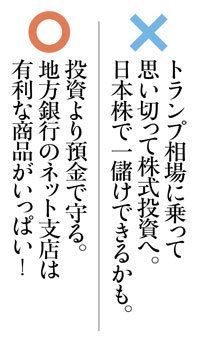 トランプ相場に乗って
思い切って株式投資へ。
日本株で一儲けできるかも。
投資より預金で守る。
地方銀行のネット支店は
有利な商品がいっぱい！